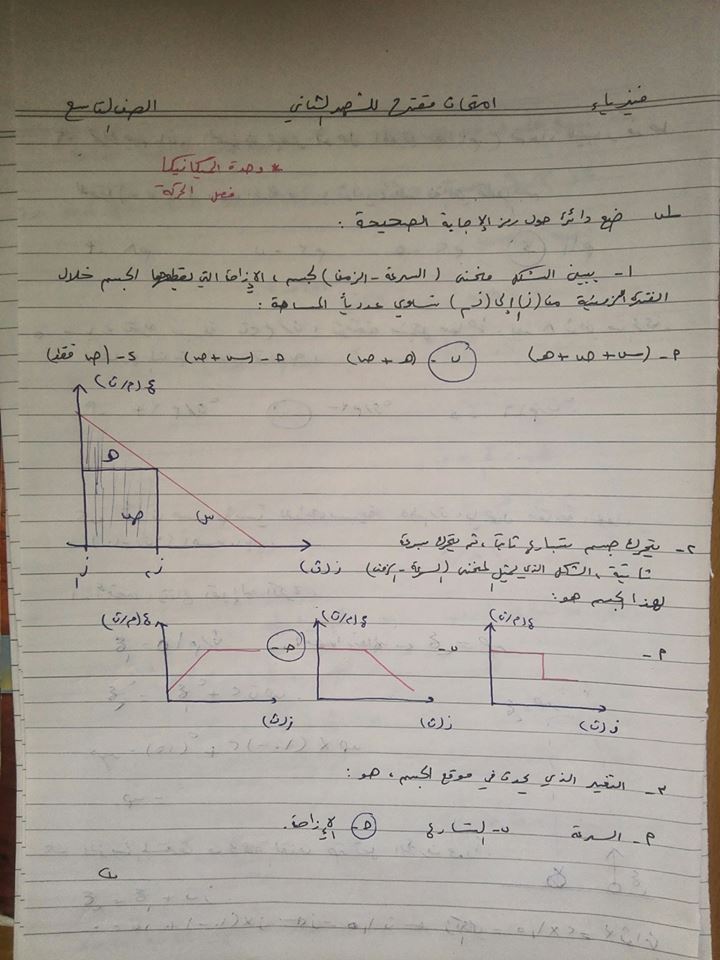 فيزياء امتحان مقترح للشهر الثاني الصف التاسع
* وحدة الميكانيكا
فصل الحركة
س١ ضع دائرة حول رمز الإجابة الصحيحة :
١- يبين الشكل منحنى (السرعة - الزمن) لجسم ، الإزاحة التي يقطعها الجسم خلال
الفترة الزمنية من (ز١) إلى (ز٢) تساوي عددياً المساحة :
٩- (س + ص + هـ) ب- (هـ + ص) ح- (س + ص) د- (ص فقط)
ع (م/ث)
هـ
ص س
ز١ ز٢ ز (ث)
٢- يتحرك جسم بتسارع ثابت ، ثم يتحرك بسرعة
ثابتة ، الشكل الذي يمثل منحنى (السرعة - الزمن)
لهذا الجسم هو :
٩- ع (م/ث) ب- ع (م/ث) ح- ع (م/ث)
ز (ث) ز (ث) ز (ث)
٣- التغير الذي يحدث في موقع الجسم ، هو :
٩- السرعة ب- التسارع ح- الإزاحة .